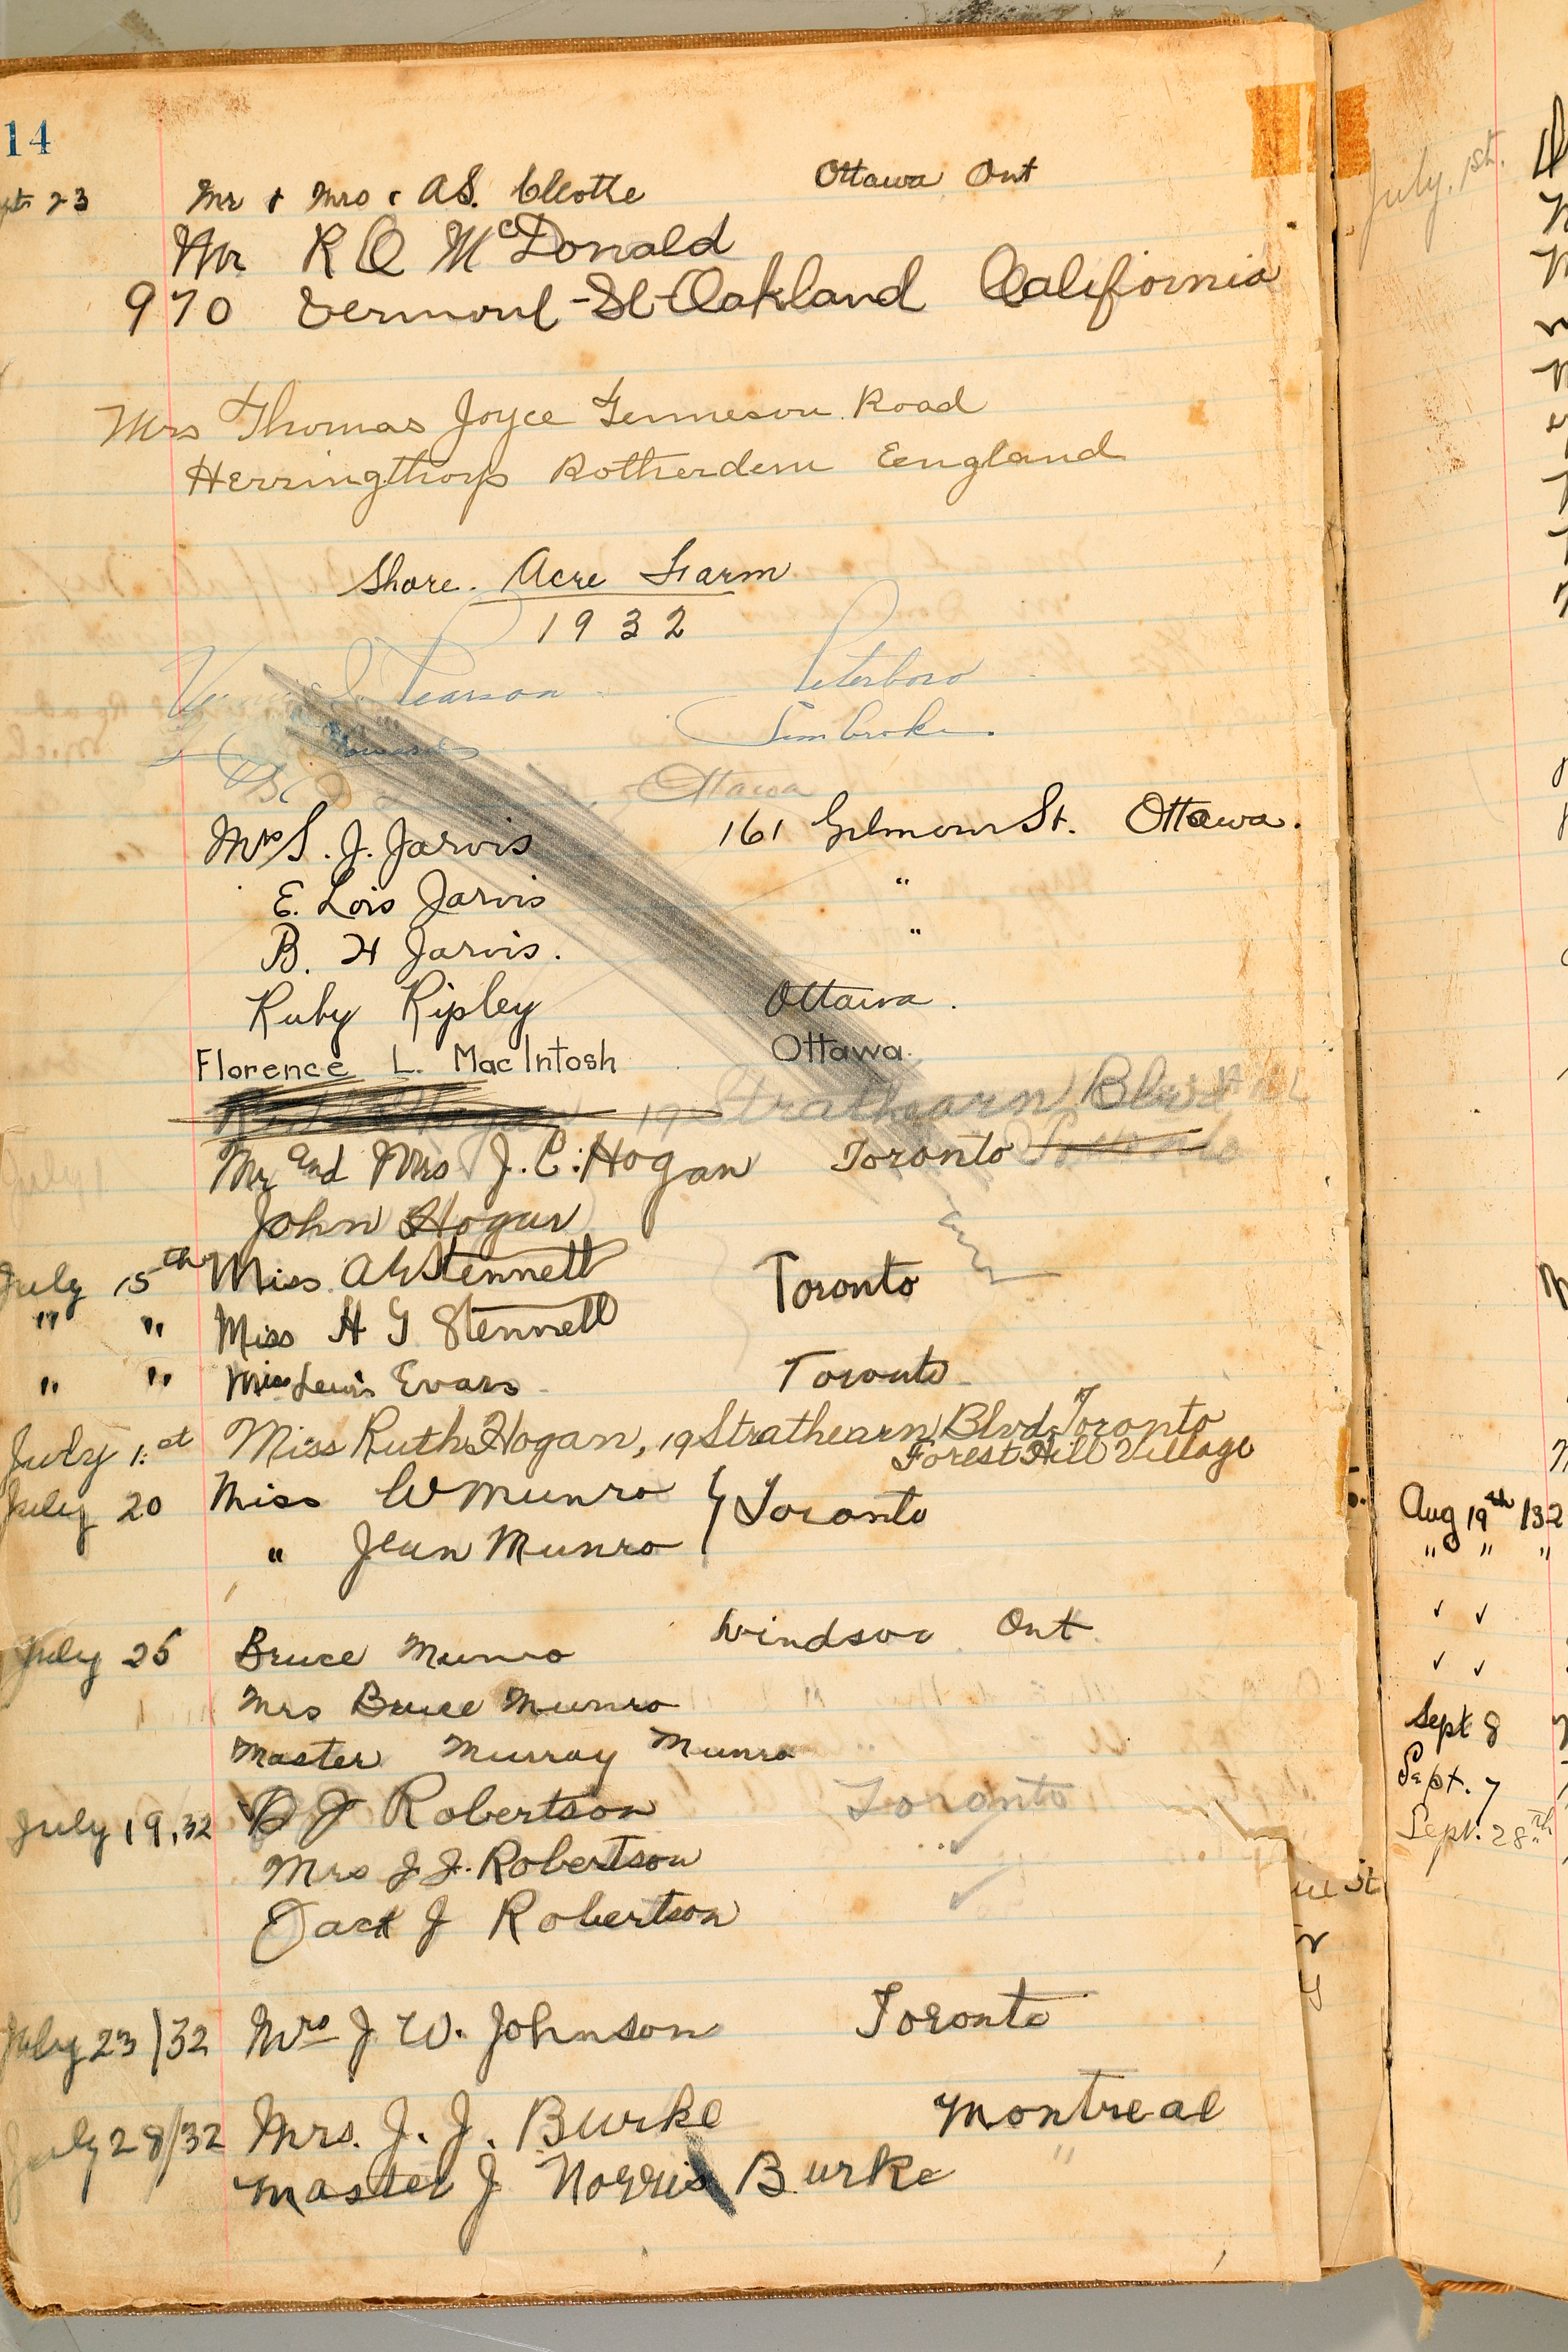 14
23 Mr & Mrs. A.S. Ottawa Ont
Mr R Q McDonald
970 Vermont-St-Oakland California
Mrs Thomas Joyce Tenneson Road
Herringthorp Rotherdem Eengland
Shore. Acre Farm
1932
Pearson Peterboro
Ottawa
Mrs S. J. Jarvis 161 Gilmour St. Ottawa.
E. Lois Jarvis "
B. H Jarvis. "
Ruby Ripley Ottawa.
Florence L. MacIntosh Ottawa.
Hogan 19 Strathearn Blvd
Mr and Mrs J. C. Hogan Toronto Toronto
John Hogan
July 15th Miss. A Stennett Toronto
" " Miss H G Stennett
" " Miss Lewis Evans Toronto
July 1st Miss Ruth Hogan, 19 Strathearn Blvd, Toronto
Forest Hill Village
July 20 Miss W Munro } Toronto
" Jean Munro
July 25 Bruce Munro Windsor Ont.
Mrs Bruce Munro
Master Murray Munro
July 19, 32 J Robertson Toronto
Mrs J. J. Robertson " ✓
Jack J Robertson ✓
July 23/32 Mrs J W. Johnson Toronto
July 28/32 Mrs. J. J. Burke Montreal
Master J Norris Burke "
July. 1st.
Aug 19th /32
" " "
✓ ✓
✓ ✓
Sept 8
Sept. 7
Sept. 28th
St